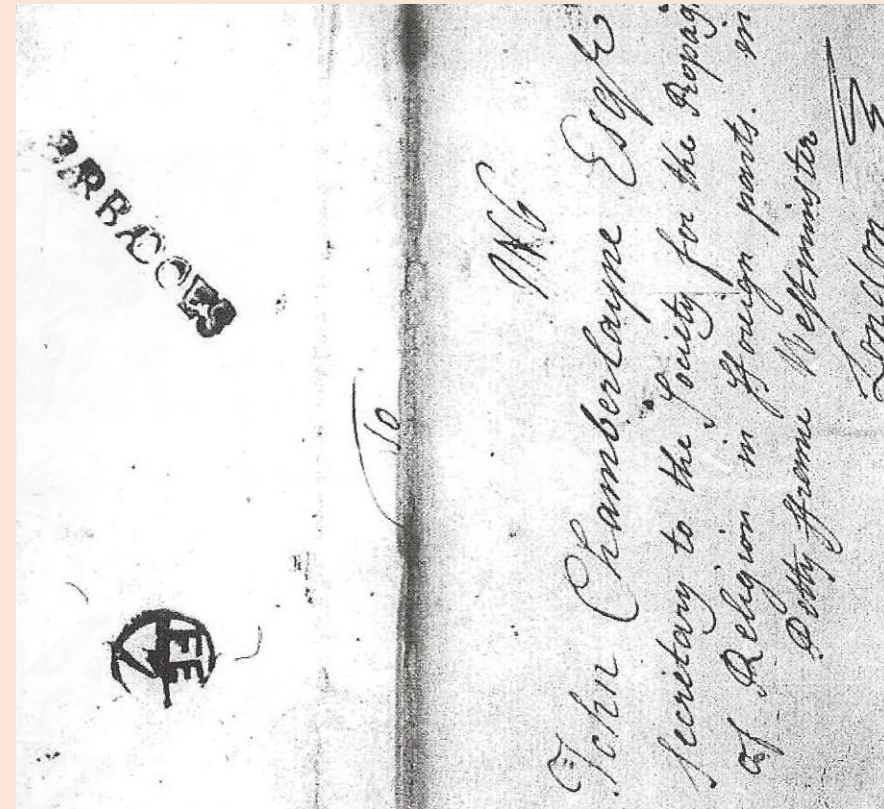 BARBADOES
FE
To
John Chamberlayne Esqr
Secretary to the Society for the Propag
of Religion in fforeign parts. in
Petty ffrance Westminster
London